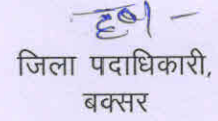 जिला पदाधिकारी,
बक्सर